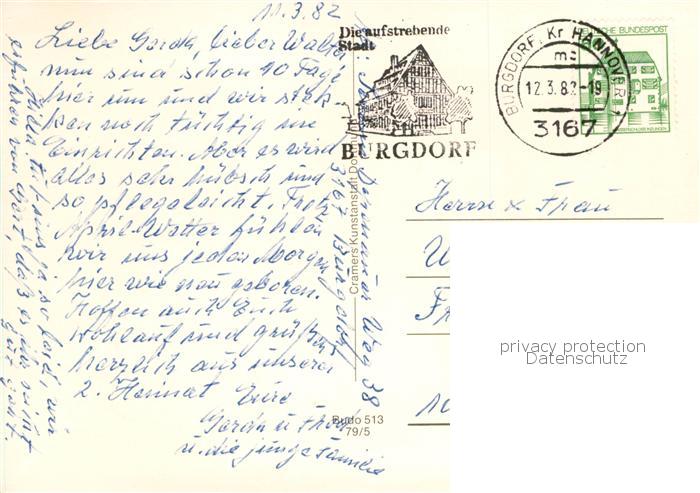 11.3.82
Liebe Gerda, lieber Walter
nun sind schon 10 Tage
hier um und wir stek-
ken noch tüchtig im
Einrichten. Aber es wird
alles sehr hübsch und
so pflegeleicht. Trotz
April-Wetter fühlen
wir uns jeden Morgen
hier wie neu geboren.
Hoffen auch Euch
wohlauf und grüßen
herzlich aus unserer
2. Heimat Eure
u. die junge Familie
so leid, wir
daß es ihr nicht
gut geht.
Weg 38
3167 Burgdorf
Cramers Kunstanstalt Do
Budo 513
79/5
Die aufstrebende
Stadt
BURGDORF
BURGDORF, Kr HANNOVER
12.3.82-19
3167
DEUTSCHE BUNDESPOST
Herrn u. Frau
privacy protection
Datenschutz